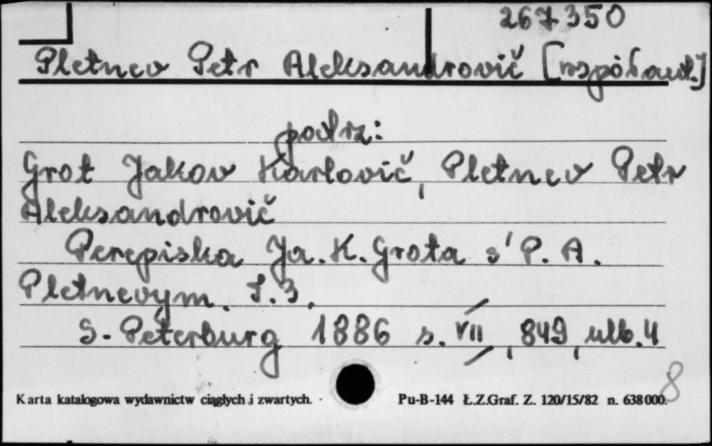 267350
Pletnev Petr Aleksandrovič [współaut.]
podrz:
Grot Jakov Karlovič, Pletnev Petr
Aleksandrovič
Perepiska Ja. K. Grota s' P. A.
Pletnevym. T.3.
S-Peterburg 1886 s. VII, 849, ulb. 4
8
Karta katalogowa wydawnictw ciągłych i zwartych. Pu-B-144 Ł.Z.Graf. Z. 120/15/82 n. 638000.